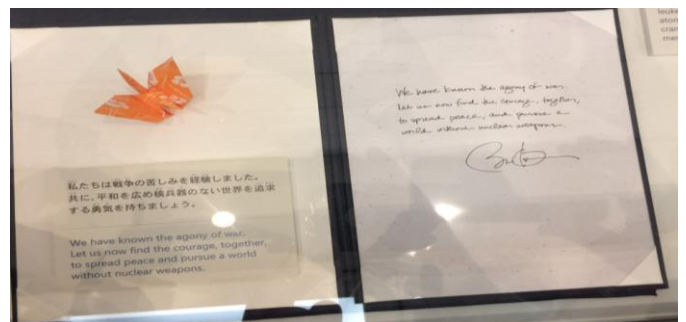 私たちは戦争の苦しみを経験しました。
共に、平和を広め核兵器のない世界を追求
する勇気を持ちましょう。
We have known the agony of war.
Let us now find the courage, together,
to spread peace and pursue a world
without nuclear weapons.
We have known the agony of war.
Let us now find the courage, together,
to spread peace, and pursue a
world without nuclear weapons.
leuke
atom
cran